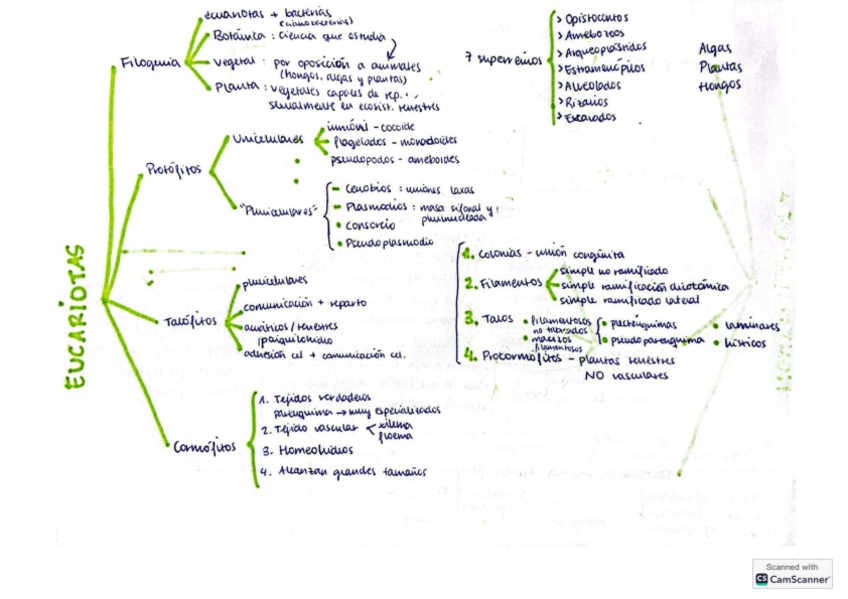 EUCARIOTAS
Filoquímia
eucariotas + bacterias
(cianobacterias)
Botánica : ciencia que estudia
vegetal : por oposición a animales
(hongos, algas y plantas)
Planta : vegetales capaces de rep.
sexualmente en ecosist. terrestres
7 superreinos
> Opistocontos
> Amebozoos
> Arqueoplástidos
> Estramenópilos
> Alveolados
> Rizarios
> Excavados
Algas
Plantas
Hongos
Protófitos
Unicelulares
inmóvil - cocoide
flagelados - monadoides
pseudopodos - ameboides
"Pluricelulares"
Cenobios : uniones laxas
Plasmodios : masa sifonal y
plurinucleada
Consorcio
Pseudoplasmodio
Talófitos
pluricelulares
comunicación + reparto
acuáticos / terrestres
(poiquilohidro
adhesión cel + comunicación cel.
1. Colonias - unión congénita
2. Filamentos
simple no ramificado
simple ramificación dicotómica
simple ramificado lateral
3. Talos
filamentosos
no tabicados
macizos
filamentosos
plecténquimas
pseudoparénquima
laminares
hísticos
4. Protocormófitos - plantas terrestres
NO vasculares
Cormófitos
1. Tejidos verdaderos
parénquima → muy especializados
2. Tejido vascular
xilema
floema
3. Homeohidros
4. Alcanzan grandes tamaños
Scanned with
CS CamScanner